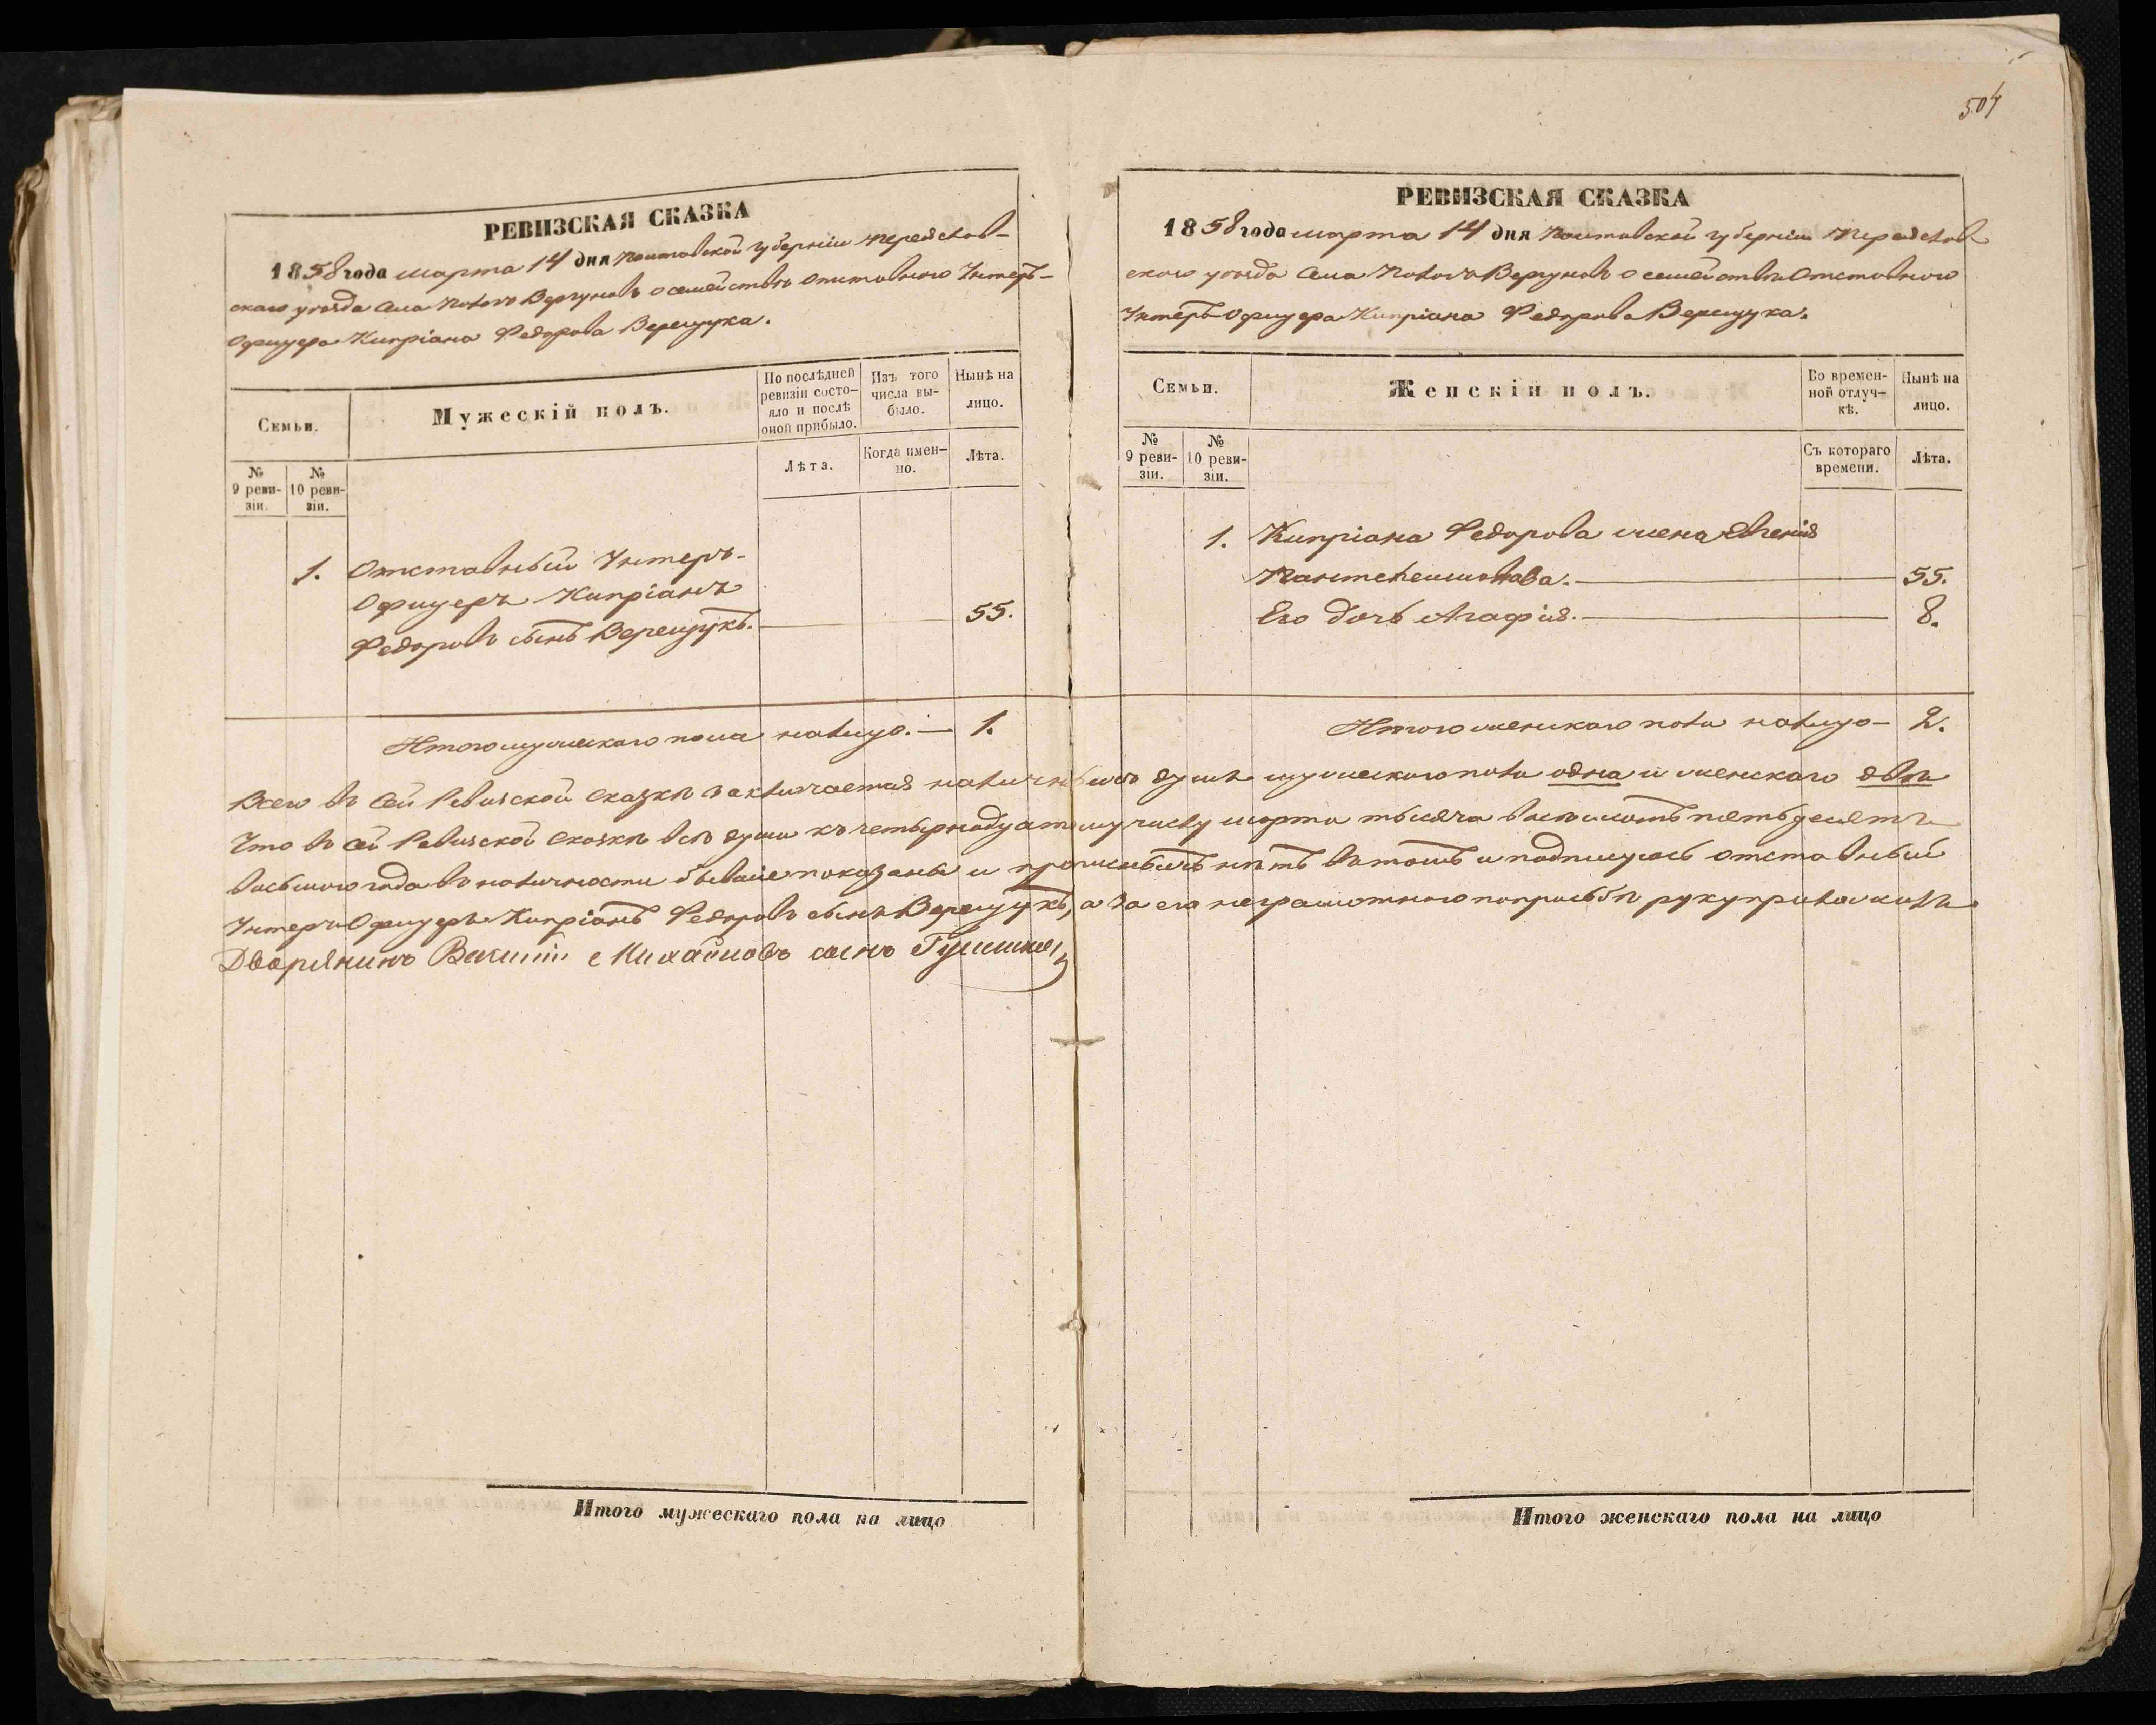 504
РЕВИЗСКАЯ СКАЗКА
1858 года марта 14 дня Полтавской губерніи Переяслов-
скаго уезда села Полого Вергуновъ о семействѣ отставного Унтеръ-
Офицера Кипріана Федорова Верещука.
Семьи.
Мужескій полъ.
По послѣдней ревизіи состо-
яло и послѣ оной прибыло.
Изъ того числа вы-
было.
Нынѣ на лицо.
№ 9 реви-
зіи.
№ 10 реви-
зіи.
Лѣта.
Когда имен-
но.
Лѣта.
1. Отставный Унтеръ-
Офицеръ Кипріанъ
Федоровъ сынъ Верещукъ. 55.
Итого мужескаго пола налицо. — 1.
РЕВИЗСКАЯ СКАЗКА
1858 года марта 14 дня Полтавской губерніи Переяслов
скаго уезда села Полого Вергуновъ о семействѣ Отставного
Унтеръ-Офицера Кипріана Федорова Верещука.
Семьи.
Женскій полъ.
Во времен-
ной отлуч-
кѣ.
Нынѣ на лицо.
№ 9 реви-
зіи.
№ 10 реви-
зіи.
Съ котораго времени.
Лѣта.
1. Кипріана Федорова жена Евгенія
Пантелеимонова. 55.
Его дочь Агафія. 8.
Итого женскаго пола налицо — 2.
Всего въ сей Ревизской сказкѣ заключается наличныхъ душъ мужескаго пола одна и женскаго двѣ
Что въ сей Ревизской сказкѣ всѣ души къ четырнадцатому числу марта тысяча восемьсотъ пятьдесятъ
восьмого года въ наличности бывшіе показаны и прописныхъ нѣтъ въ томъ и подпишусь отставный
Унтеръ Офицеръ Кипріанъ Федоровъ сынъ Верещукъ, а за его неграмотного по просьбѣ руку приложилъ
Дворянинъ Василій Михайловъ сынъ
Итого мужескаго пола на лицо
Итого женскаго пола на лицо